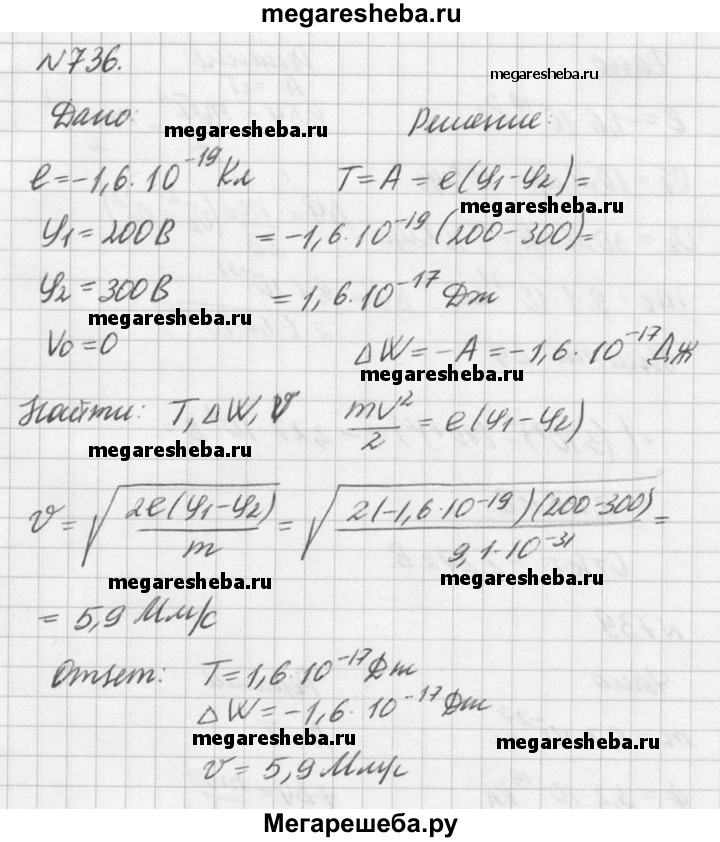 megaresheba.ru
№736.
megaresheba.ru
Дано:
megaresheba.ru
Решение:
e = -1,6·10⁻¹⁹ Кл
T = A = e(φ₁-φ₂) =
megaresheba.ru
φ₁ = 200В
= -1,6·10⁻¹⁹ (200-300) =
φ₂ = 300В
= 1,6·10⁻¹⁷ Дж
megaresheba.ru
V₀ = 0
ΔW = -A = -1,6·10⁻¹⁷ Дж
megaresheba.ru
Найти: T, ΔW, V
mV²/2 = e(φ₁-φ₂)
megaresheba.ru
v = √(2e(φ₁-φ₂)/m) = √(2(-1,6·10⁻¹⁹)(200-300)/9,1·10⁻³¹) =
megaresheba.ru
megaresheba.ru
= 5,9 Мм/с
Ответ: T = 1,6·10⁻¹⁷ Дж
ΔW = -1,6·10⁻¹⁷ Дж
megaresheba.ru
megaresheba.ru
v = 5,9 Мм/с
Мегарешеба.ру